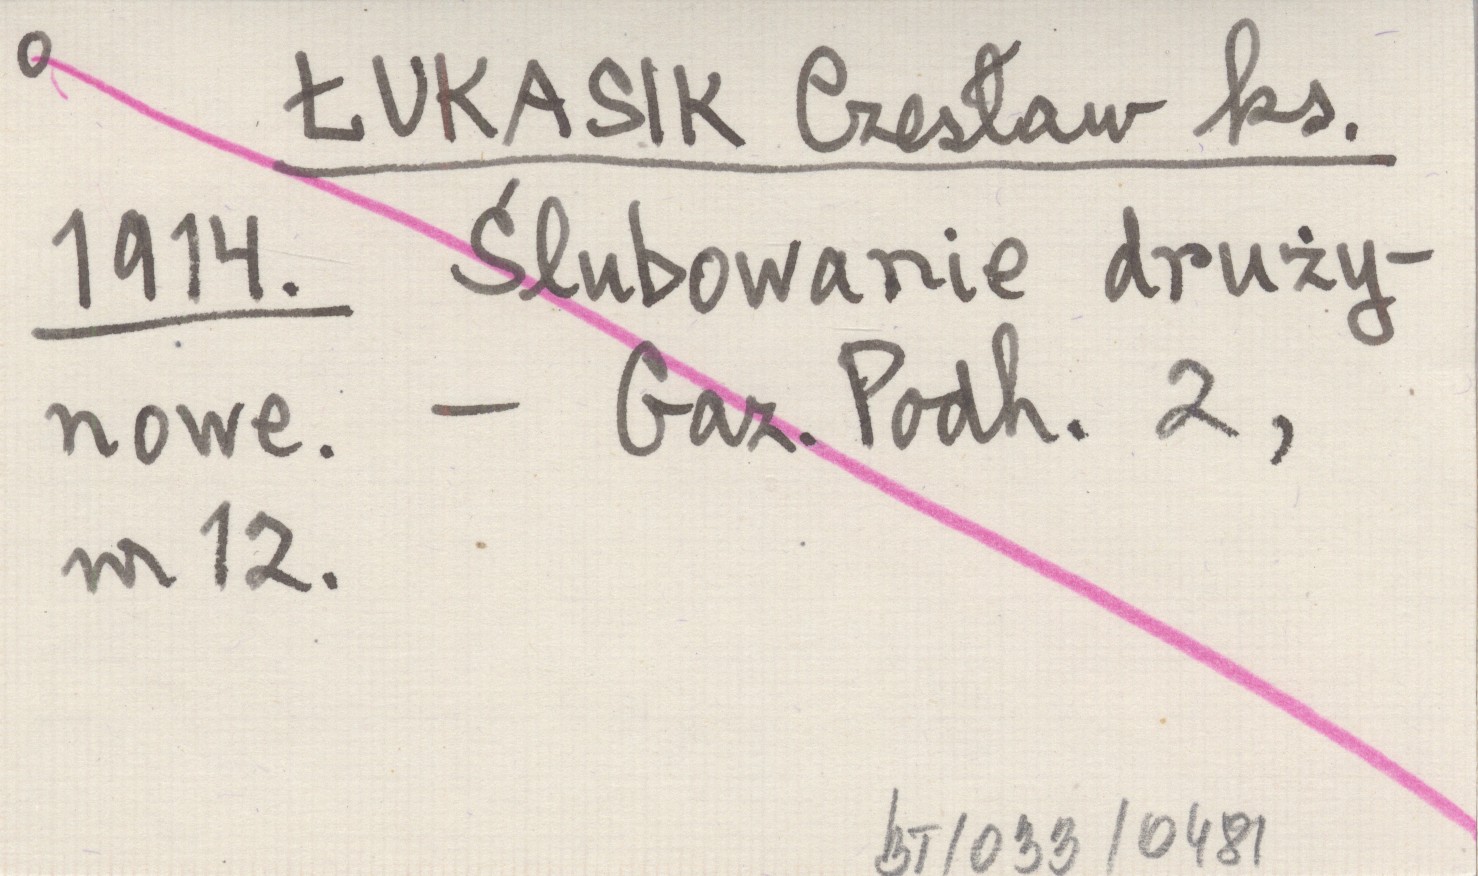 o
ŁUKASIK Czesław ks.
1914. Ślubowanie druży-
nowe. – Gaz. Podh. 2,
nr 12.
BT/033/0481